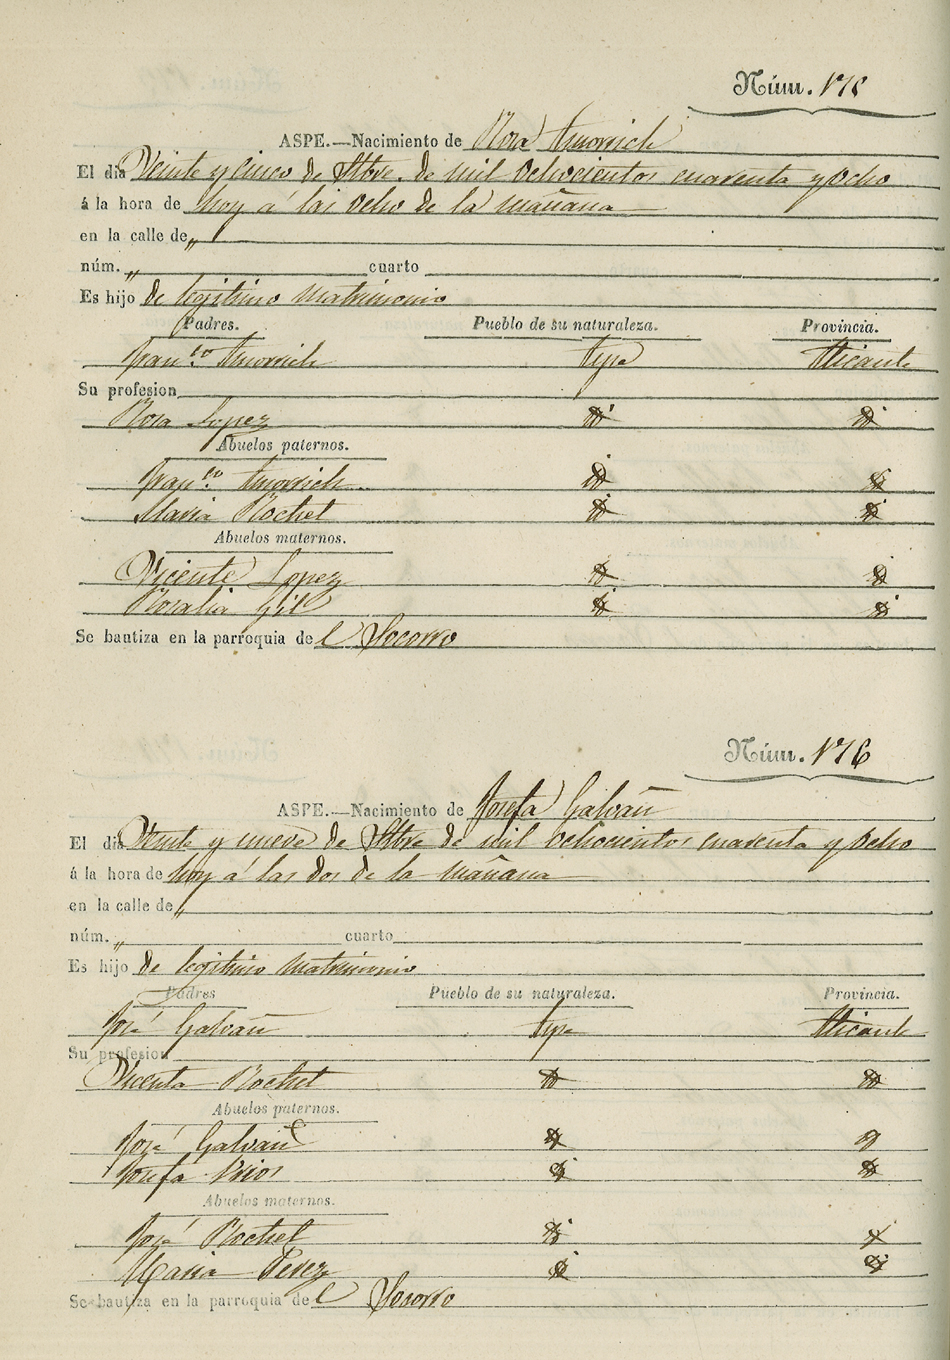 Núm. 175
ASPE.—Nacimiento de Rosa Amorrich
El dia Veinte y cinco de Stbre. de mil ochocientos cuarenta y ocho
á la hora de hoy á las ocho de la mañana
en la calle de „
núm. „ cuarto
Es hijo de legitimo matrimonio
Padres. Pueblo de su naturaleza. Provincia.
Franco. Amorrich Aspe Alicante
Su profesion
Rosa Lopez
Abuelos paternos.
Franco. Amorrich
Maria Bochet
Abuelos maternos.
Vicente Lopez
Rosalia Gil
Se bautiza en la parroquia del Socorro
Núm. 176
ASPE.—Nacimiento de Josefa Galvañ
El dia Veinte y nueve de Stbre de mil ochocientos cuarenta y ocho
á la hora de hoy á las dos de la mañana
en la calle de „
núm. „ cuarto
Es hijo de legitimo matrimonio
Padres Pueblo de su naturaleza. Provincia.
José Galvañ Aspe Alicante
Su profesion
Vicenta Bochet
Abuelos paternos.
José Galvañ
Josefa
Abuelos maternos.
José Bochet
Maria Perez
Se bautiza en la parroquia del Socorro